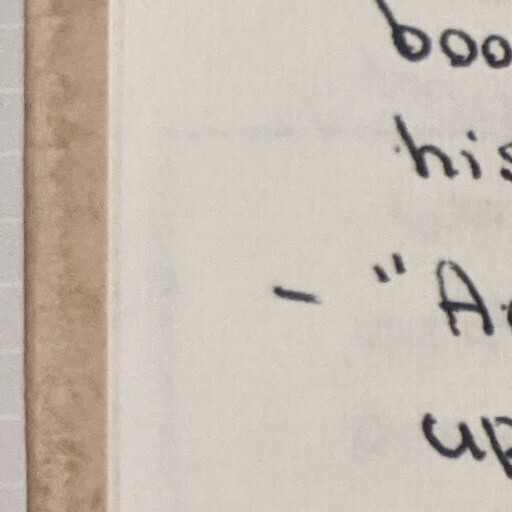 boo
his
- "A
up